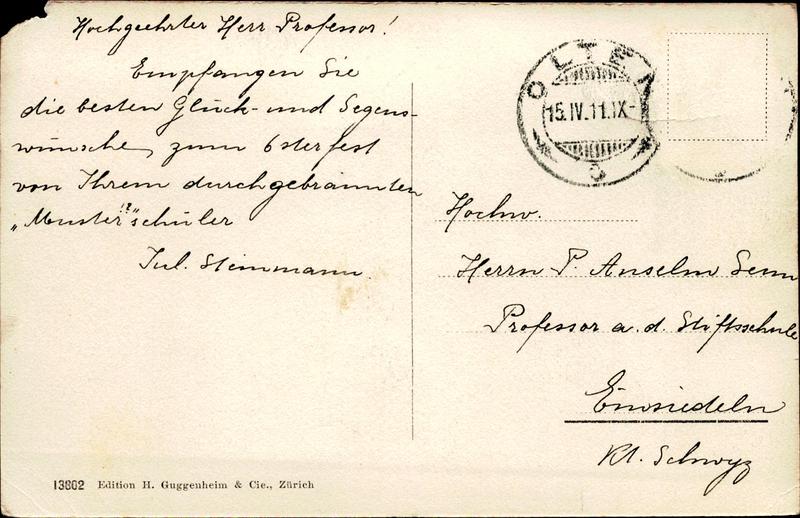 Hochgeehrter Herr Professor!
Empfangen Sie
die besten Glück- und Segens-
wünsche, zum Osterfest
von Ihrem durchgebrannten
„Muster"?schüler
Jul. Steinmann
OLTEN
15.IV.11.IX-
Hochw.
Herrn P. Anselm Senn
Professor a. d. Stiftsschule
Einsiedeln
Kt. Schwyz
13802 Edition H. Guggenheim & Cie., Zürich